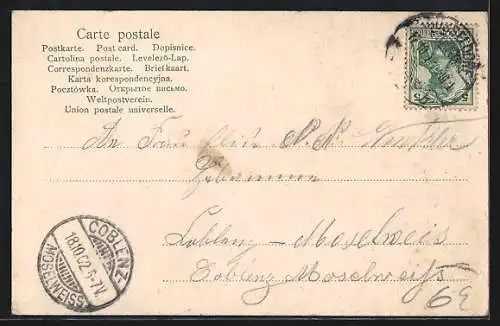 Carte postale
Postkarte. Post card. Dopisnice.
Cartolina postale. Levelező-Lap.
Correspondenzkarte. Briefkaart.
Karta korespondencyjna.
Pocztówka. Открытое письмо.
Weltpostverein.
Union postale universelle.
An Frau
Coblenz-Moselweis
Coblenz Moselweiß
COBLENZ-
18.10.02.6-7N.
MOSELWEISS